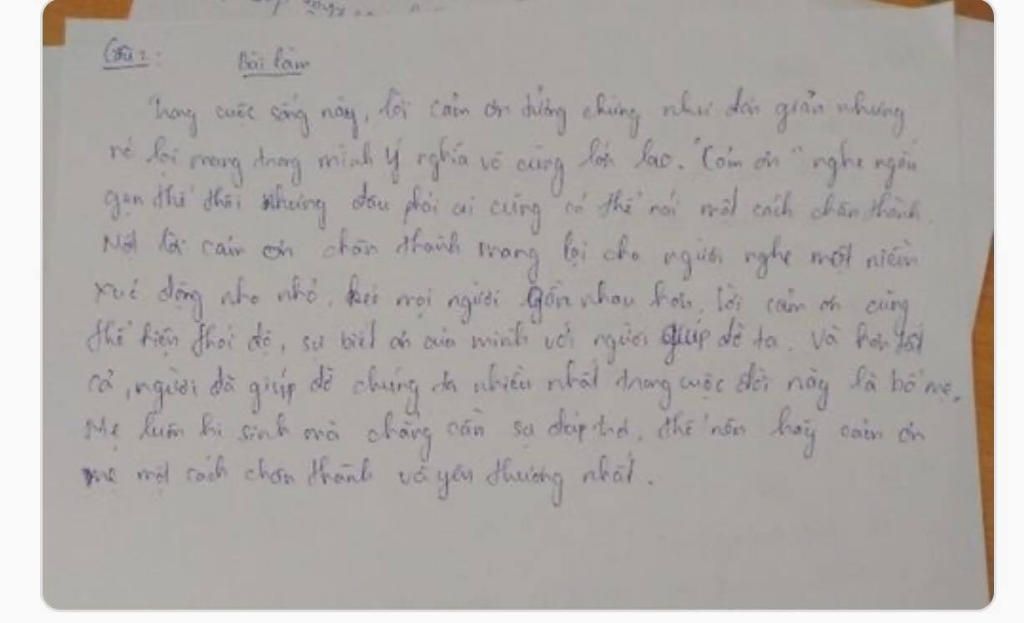 Câu 2: Bài làm
Trong cuộc sống này, lời cảm ơn tưởng chừng như đơn giản nhưng
nó lại mang trong mình ý nghĩa vô cùng lớn lao. "Cảm ơn" nghe ngắn
gọn thế thôi nhưng đâu phải ai cũng có thể nói một cách chân thành.
Một lời cảm ơn chân thành mang lại cho người nghe một niềm
xúc động nho nhỏ, kéo mọi người gần nhau hơn, lời cảm ơn cũng
thể hiện thái độ, sự biết ơn của mình với người giúp đỡ ta. Và hơn tất
cả, người đã giúp đỡ chúng ta nhiều nhất trong cuộc đời này là bố mẹ.
Mẹ luôn hi sinh mà chẳng cần sự đáp trả, thế nên hãy cảm ơn
mẹ một cách chân thành và yêu thương nhất.